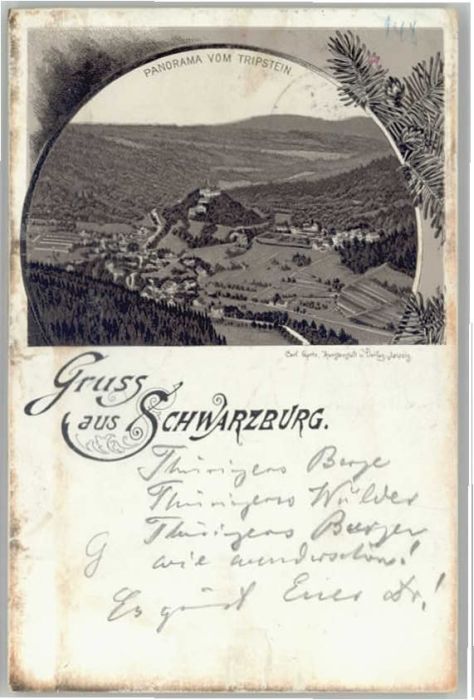 148
PANORAMA VOM TRIPSTEIN.
Carl Garte, Kunstanstalt u. Verlag, Leipzig.
Gruss
aus SCHWARZBURG.
Thüringens Berge
Thüringens Wälder
Thüringens Burgen
G wie wunderschön!
Es grüßt Euer Dr.!